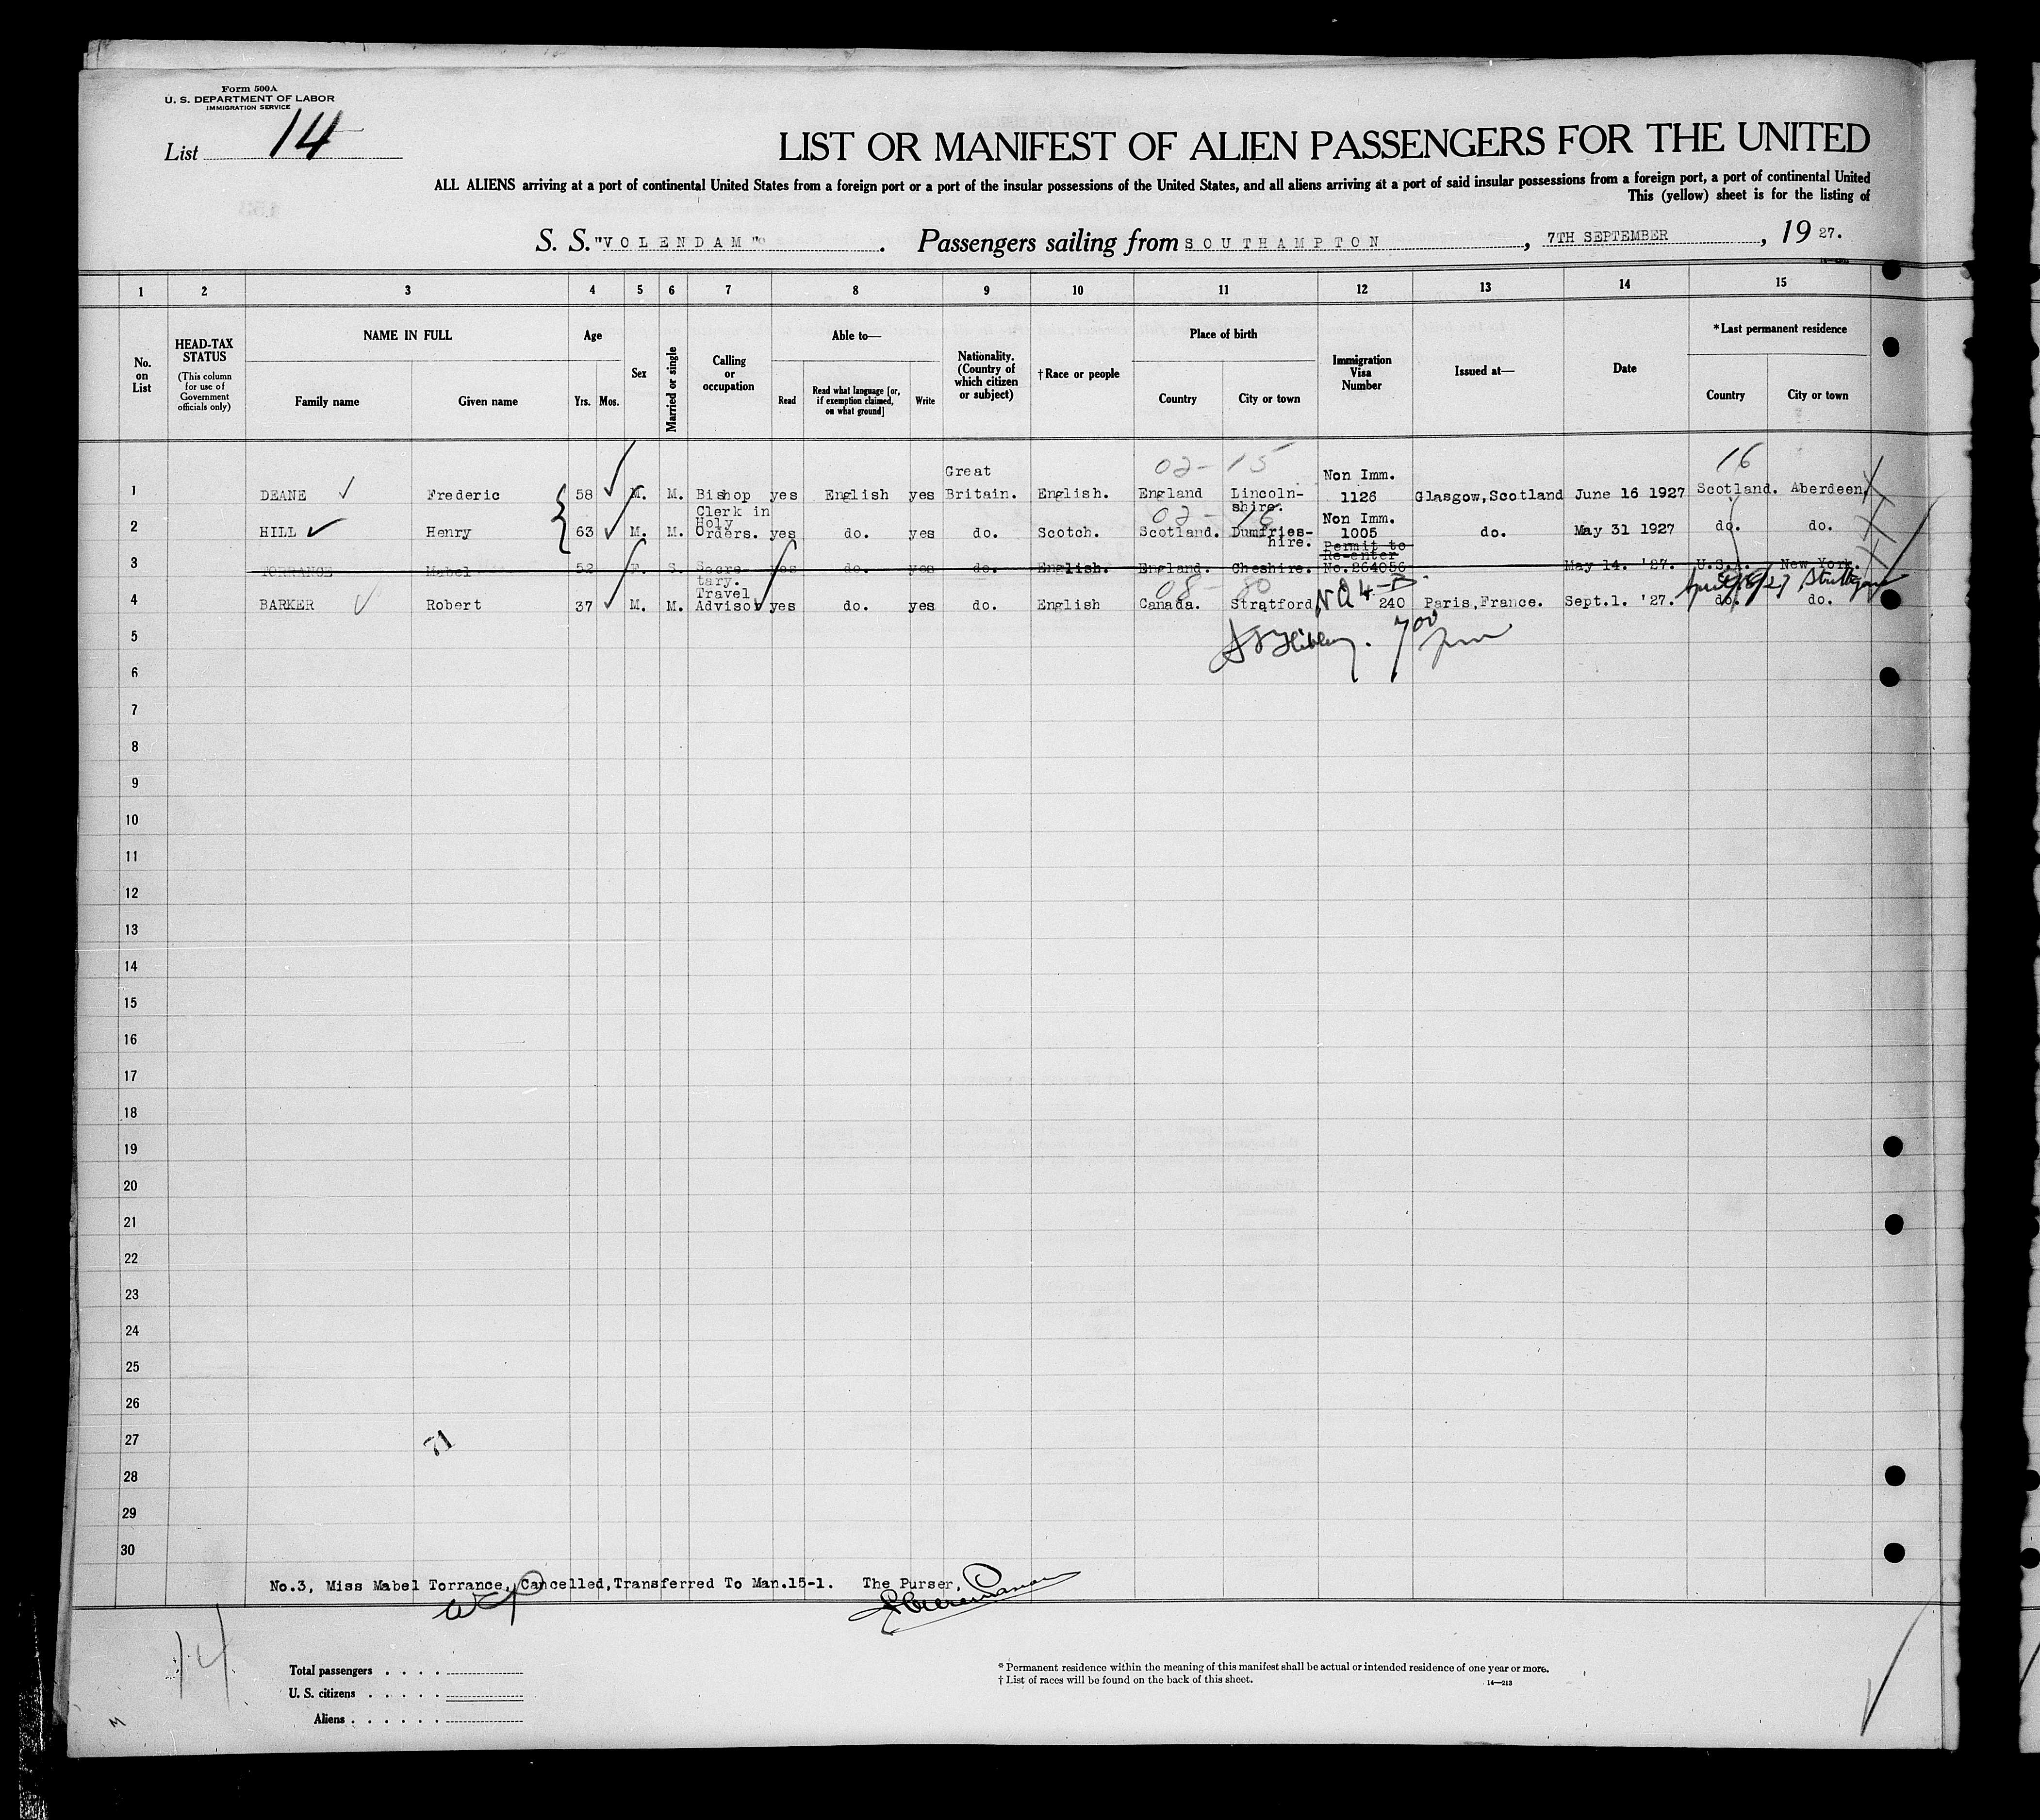 Form 500A
U. S. DEPARTMENT OF LABOR
IMMIGRATION SERVICE
List 14
LIST OR MANIFEST OF ALIEN PASSENGERS FOR THE UNITED
ALL ALIENS arriving at a port of continental United States from a foreign port or a port of the insular possessions of the United States, and all aliens arriving at a port of said insular possessions from a foreign port, a port of continental United
This (yellow) sheet is for the listing of
S. S. "VOLENDAM". Passengers sailing from SOUTHAMPTON, 7TH SEPTEMBER, 1927.
1 2 3 4 5 6 7 8 9 10 11 12 13 14 15
No. on List
HEAD-TAX STATUS (This column for use of Government officials only)
NAME IN FULL
Family name Given name
Age
Yrs. Mos.
Sex
Married or single
Calling or occupation
Able to—
Read
Read what language [or, if exemption claimed, on what ground]
Write
Nationality. (Country of which citizen or subject)
†Race or people
Place of birth
Country City or town
Immigration Visa Number
Issued at—
Date
*Last permanent residence
Country City or town
02-15 16
1 DEANE Frederic 58 M. M. Bishop yes English yes Great Britain. English. England Lincoln-shire. Non Imm. 1126 Glasgow,Scotland June 16 1927 Scotland. Aberdeen,
02-16
2 HILL Henry 63 M. M. Clerk in Holy Orders. yes do. yes do. Scotch. Scotland. Dumfries-hire. Non Imm. 1005 do. May 31 1927 do. do.
3 TORRANCE Mabel 52 F. S. Secre-tary. yes do. yes do. English. England. Cheshire. Permit to Re-enter No.264056 May 14. '27. U.S.A. New York.
08-80
4 BARKER Robert 37 M. M. Travel Advisor yes do. yes do. English Canada. Stratford 240 Paris,France. Sept.1. '27. do. do.
7 00 pm
5
6
7
8
9
10
11
12
13
14
15
16
17
18
19
20
21
22
23
24
25
26
27
71
28
29
30
No.3, Miss Mabel Torrance, Cancelled,Transferred To Man.15-1. The Purser,
14
Total passengers . . . .
U. S. citizens . . . . .
Aliens . . . . . .
* Permanent residence within the meaning of this manifest shall be actual or intended residence of one year or more.
† List of races will be found on the back of this sheet.
14—213